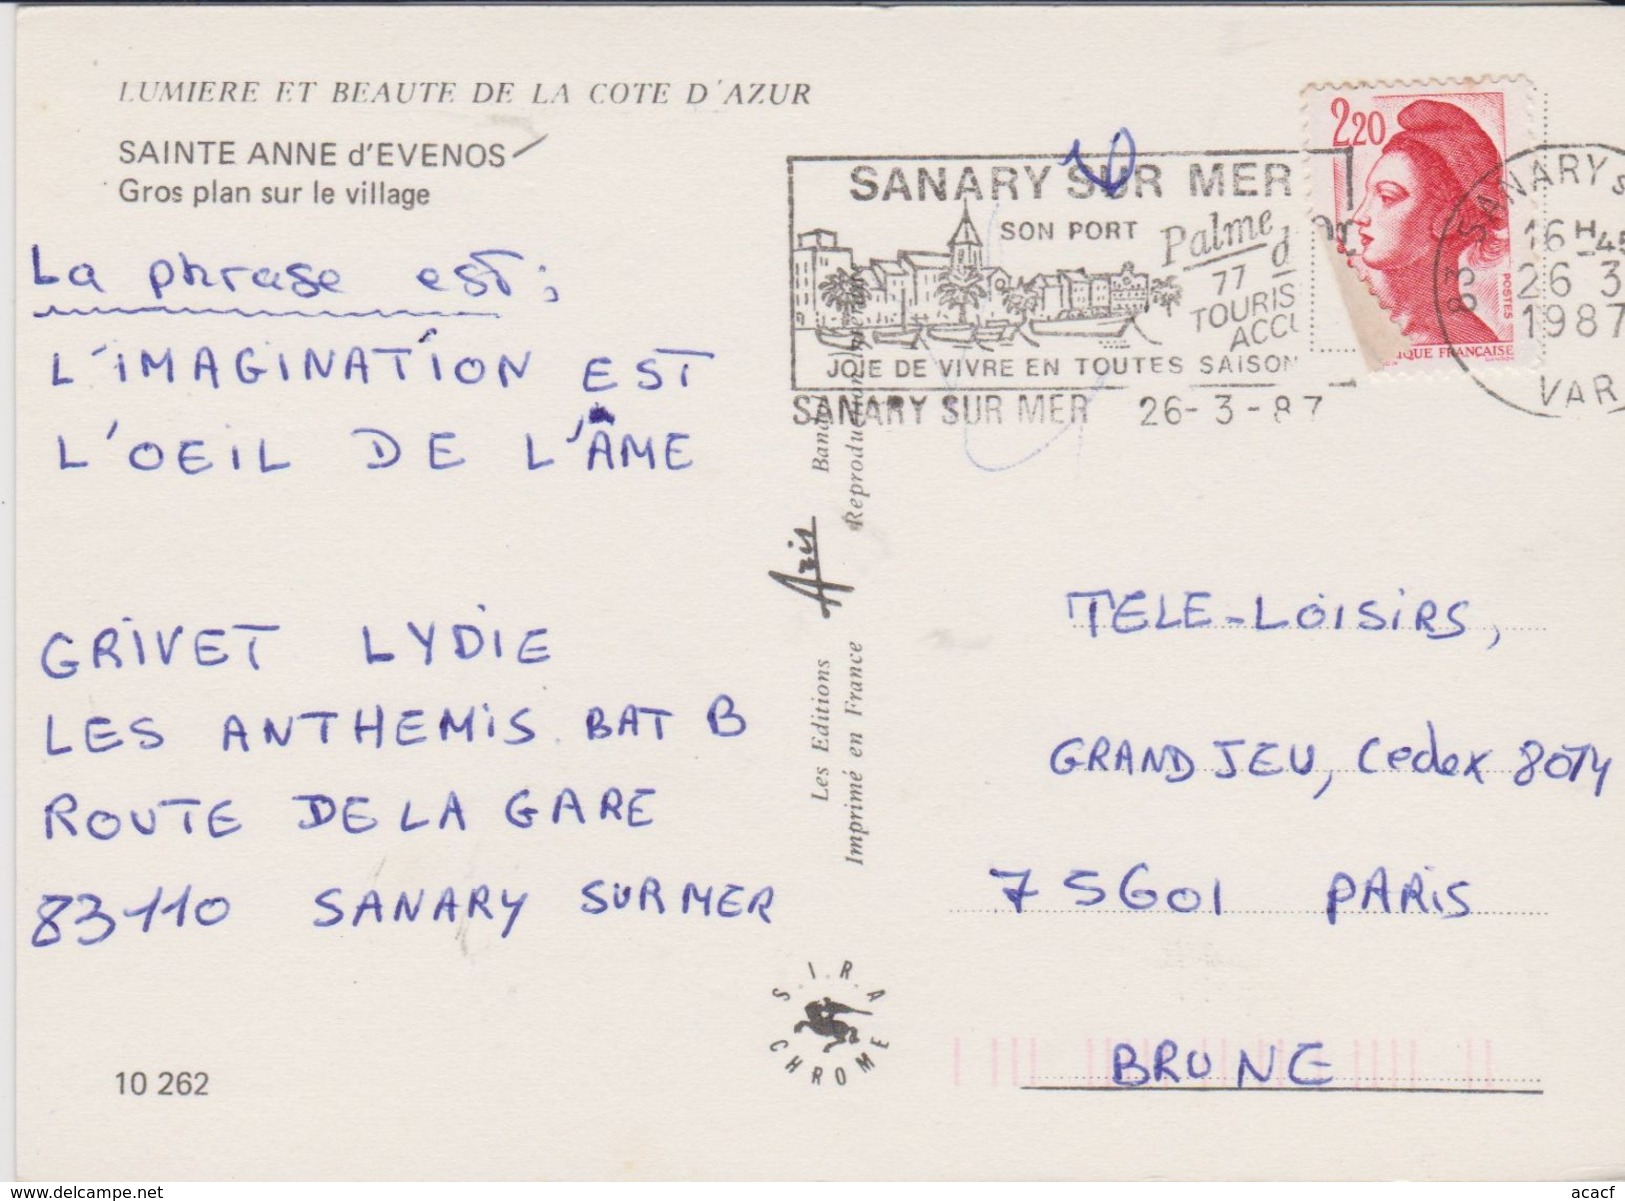 LUMIERE ET BEAUTE DE LA COTE D'AZUR
SAINTE ANNE d'EVENOS
Gros plan sur le village
La phrase est :
L'IMAGINATION EST
L'OEIL DE L'ÂME
GRIVET LYDIE
LES ANTHEMIS BAT B
ROUTE DE LA GARE
83110 SANARY SUR MER
10 262
Les Editions Aris
Imprimé en France
Reproduction
S.I.R.A
CHROME
SANARY SUR MER
SON PORT
Palme
77
TOURIS
ACCU
JOIE DE VIVRE EN TOUTES SAISON
SANARY SUR MER 26-3-87
2,20
POSTES
IQUE FRANÇAISE
83 SANARY S
16H45
26 3
1987
VAR
TELE-LOISIRS,
GRAND JEU, Cedex 8074
75601 PARIS
BRUNE
delcampe.net
acacf